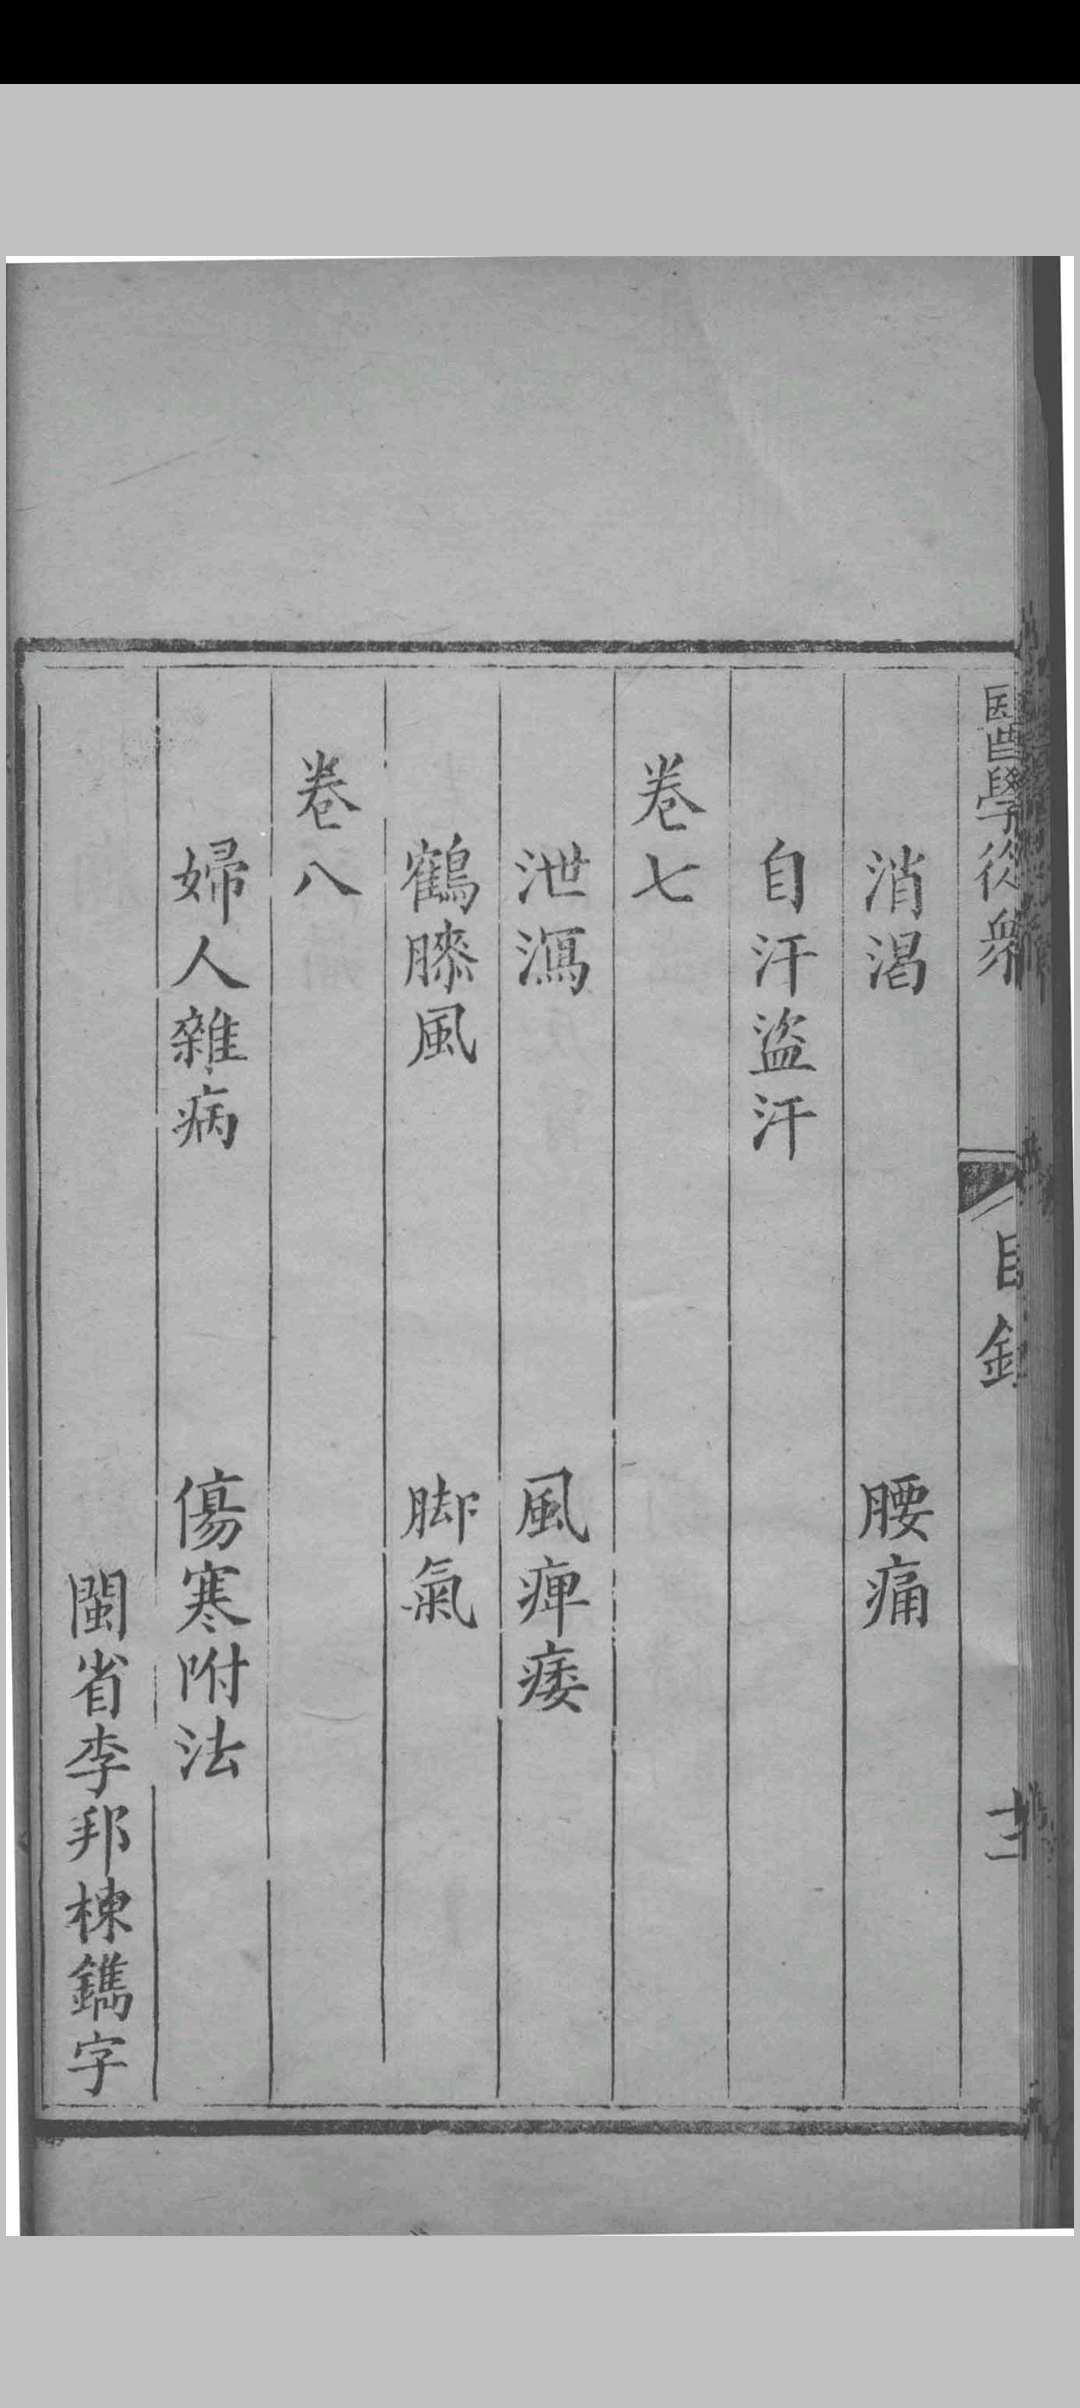 醫學從衆
目錄
十二
消渴 腰痛
自汗盜汗
卷七
泄瀉 風痺痿
鶴膝風 脚氣
卷八
婦人雜病 傷寒附法
閩省李邦棟鐫字